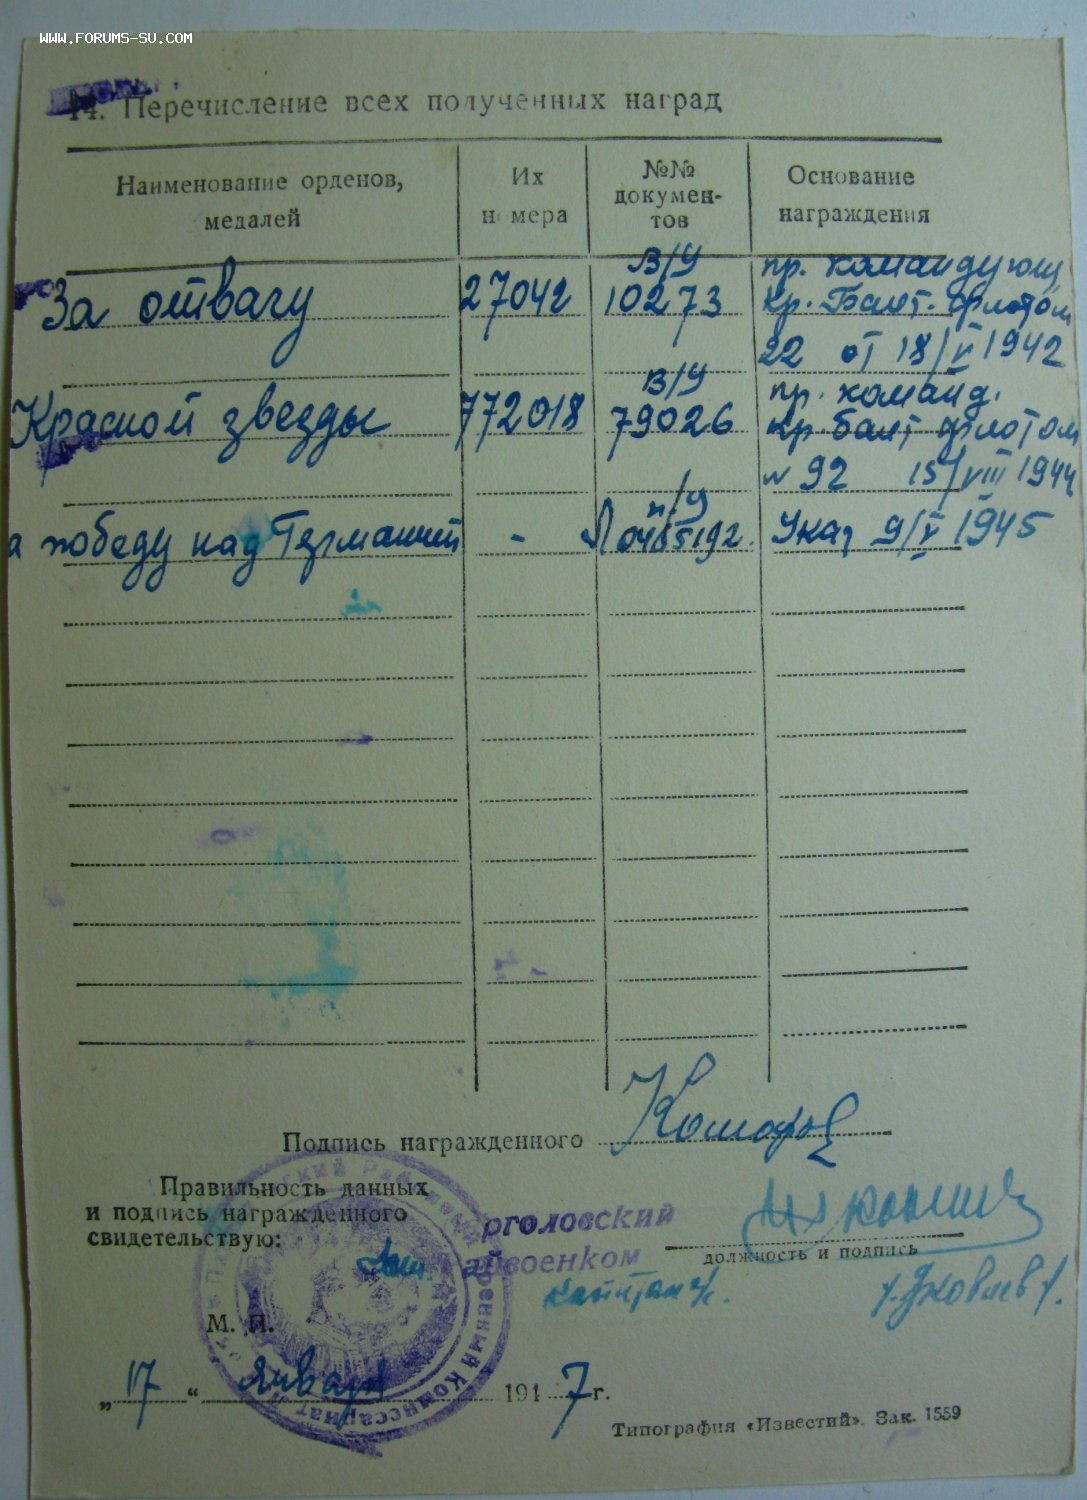 WWW.FORUMS-SU.COM
14. Перечисление всех полученных наград
Наименование орденов, медалей
Их номера
№№ документов
Основание награждения
За отвагу
27042
В/У
10273
пр. командующ
Кр. Балт. флотом
22 от 18/V 1942
Красной звезды
772018
В/У
79026
пр. команд.
Кр. Балт флотом
№ 92 15/VIII 1944
а победу над Германией
-
Л 0465192.
Указ 9/V 1945
Подпись награжденного Комаров
Правильность данных
и подпись награжденного
свидетельствую:
рголовский
айвоенком
капитан
должность и подпись
/Яковлев/.
М. П.
„17“ Января 1947 г.
Районный Военный Комиссариат
Типография «Известий». Зак. 1559